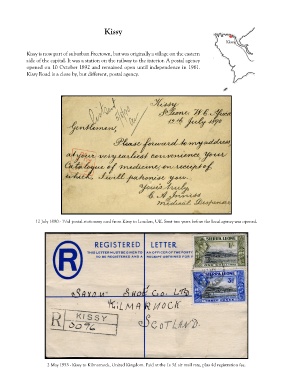 Kissy
Kissy
Kissy is now part of suburban Freetown, but was originally a village on the eastern
side of the capital. It was a station on the railway to the interior. A postal agency
opened on 10 October 1892 and remained open until independence in 1961.
Kissy Road is a close by, but different, postal agency.
Kissy
S. Leone. W. C. Africa
12th July 1890
Gentlemen,
Please forward to my address
at your very earliest convenience your
Catalogue of medicine, on receipt of
which, I will patronise you.
Yours truly,
Medical Dispenser
12 July 1890 - postal stationery card from Kissy to London, UK. Sent two years before the local agency was opened.
REGISTERED LETTER.
R
SIERRA LEONE
SAXON SHOE CO. LTD
KILMARNOCK
SCOTLAND.
R
KISSY
5096
2 May 1955 - Kissy to Kilmarnock, United Kingdom. Paid at the 1s 3d air mail rate, plus 4d registration fee.